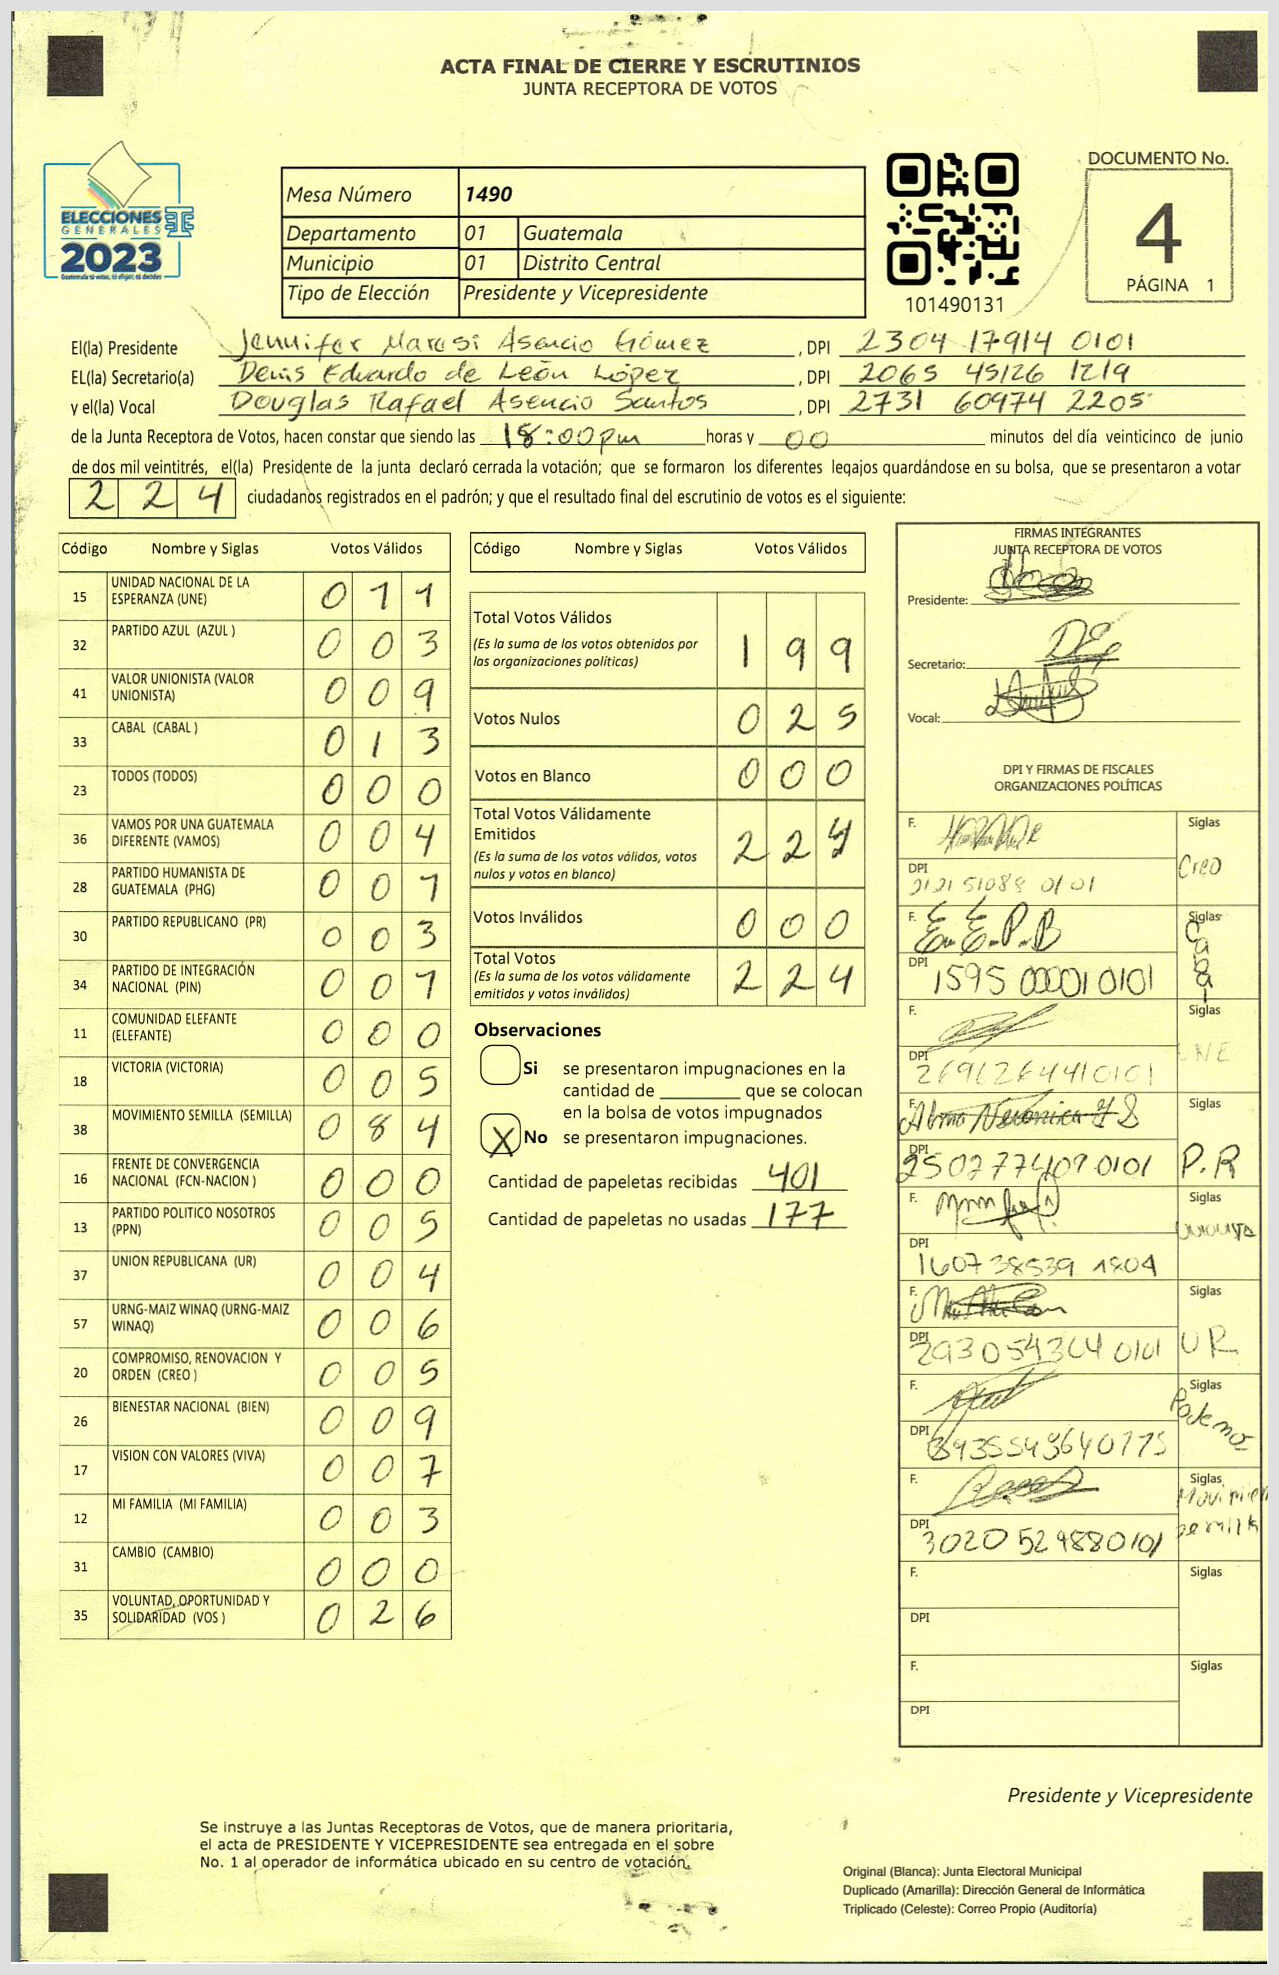 ACTA FINAL DE CIERRE Y ESCRUTINIOS
JUNTA RECEPTORA DE VOTOS
ELECCIONES
GENERALES
2023
Guatemala tú votas, tú eliges, tú decides
Mesa Número 1490
Departamento 01 Guatemala
Municipio 01 Distrito Central
Tipo de Elección Presidente y Vicepresidente
101490131
DOCUMENTO No.
4
PÁGINA 1
El(la) Presidente Jennifer Maresi Asencio Gómez , DPI 2304 17914 0101
EL(la) Secretario(a) Denis Eduardo de León López , DPI 2065 45126 1219
y el(la) Vocal Douglas Rafael Asencio Santos , DPI 2731 60974 2205
de la Junta Receptora de Votos, hacen constar que siendo las 18:00pm horas y 00 minutos del día veinticinco de junio
de dos mil veintitrés, el(la) Presidente de la junta declaró cerrada la votación; que se formaron los diferentes legajos guardándose en su bolsa, que se presentaron a votar
224 ciudadanos registrados en el padrón; y que el resultado final del escrutinio de votos es el siguiente:
Código Nombre y Siglas Votos Válidos
15 UNIDAD NACIONAL DE LA ESPERANZA (UNE) 0 1 1
32 PARTIDO AZUL (AZUL ) 0 0 3
41 VALOR UNIONISTA (VALOR UNIONISTA) 0 0 9
33 CABAL (CABAL ) 0 1 3
23 TODOS (TODOS) 0 0 0
36 VAMOS POR UNA GUATEMALA DIFERENTE (VAMOS) 0 0 4
28 PARTIDO HUMANISTA DE GUATEMALA (PHG) 0 0 1
30 PARTIDO REPUBLICANO (PR) 0 0 3
34 PARTIDO DE INTEGRACIÓN NACIONAL (PIN) 0 0 1
11 COMUNIDAD ELEFANTE (ELEFANTE) 0 0 0
18 VICTORIA (VICTORIA) 0 0 5
38 MOVIMIENTO SEMILLA (SEMILLA) 0 8 4
16 FRENTE DE CONVERGENCIA NACIONAL (FCN-NACION ) 0 0 0
13 PARTIDO POLITICO NOSOTROS (PPN) 0 0 5
37 UNION REPUBLICANA (UR) 0 0 4
57 URNG-MAIZ WINAQ (URNG-MAIZ WINAQ) 0 0 6
20 COMPROMISO, RENOVACION Y ORDEN (CREO ) 0 0 5
26 BIENESTAR NACIONAL (BIEN) 0 0 9
17 VISION CON VALORES (VIVA) 0 0 7
12 MI FAMILIA (MI FAMILIA) 0 0 3
31 CAMBIO (CAMBIO) 0 0 0
35 VOLUNTAD, OPORTUNIDAD Y SOLIDARIDAD (VOS ) 0 2 6
Código Nombre y Siglas Votos Válidos
Total Votos Válidos 1 9 9
(Es la suma de los votos obtenidos por
las organizaciones políticas)
Votos Nulos 0 2 5
Votos en Blanco 0 0 0
Total Votos Válidamente
Emitidos 2 2 4
(Es la suma de los votos válidos, votos
nulos y votos en blanco)
Votos Inválidos 0 0 0
Total Votos 2 2 4
(Es la suma de los votos válidamente
emitidos y votos inválidos)
Observaciones
Si se presentaron impugnaciones en la
cantidad de ________ que se colocan
en la bolsa de votos impugnados
X No se presentaron impugnaciones.
Cantidad de papeletas recibidas 401
Cantidad de papeletas no usadas 177
FIRMAS INTEGRANTES
JUNTA RECEPTORA DE VOTOS
Presidente:
Secretario:
Vocal:
DPI Y FIRMAS DE FISCALES
ORGANIZACIONES POLÍTICAS
F. Siglas Creo
DPI 2121 51088 0101
F. E. E. P. B Siglas Cabal
DPI 1595 00001 0101
F. Siglas UNE
DPI 2696264410101
F. Siglas P.R
DPI 2502774090101
F. Siglas
DPI 1607 38539 1804
F. Siglas UR
DPI 2930543040101
F. Siglas Podemos
DPI
F. Siglas Movimien
DPI 3020 52988 0101
F. Siglas
DPI
F. Siglas
DPI
Presidente y Vicepresidente
Se instruye a las Juntas Receptoras de Votos, que de manera prioritaria,
el acta de PRESIDENTE Y VICEPRESIDENTE sea entregada en el sobre
No. 1 al operador de informática ubicado en su centro de votación.
Original (Blanca): Junta Electoral Municipal
Duplicado (Amarilla): Dirección General de Informática
Triplicado (Celeste): Correo Propio (Auditoría)